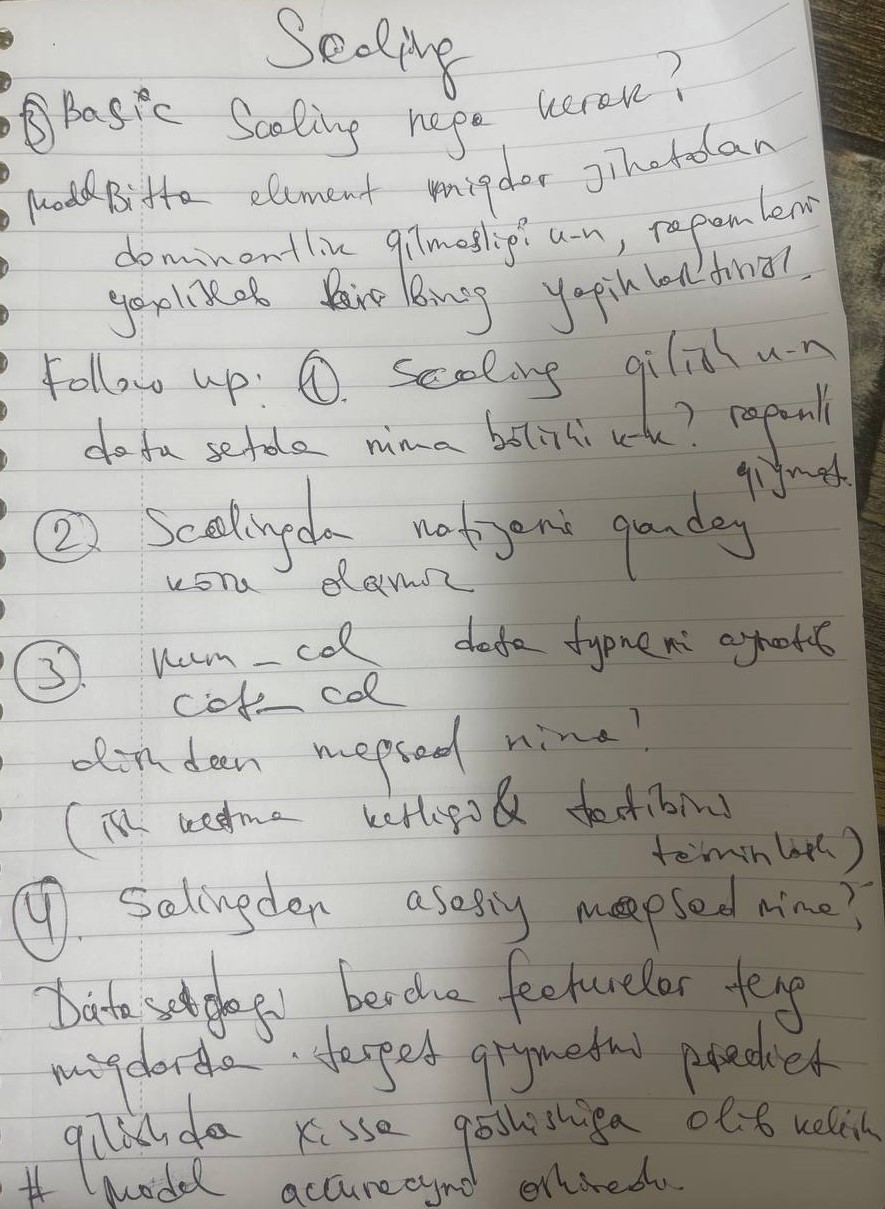 Scaling
③ Basic Scaling nega kerak?
Model Bitta element miqdor jihatdan
dominantlik qilmasligi u-n, raqamlarni
yaxlitlab biri biriga yaqinlashtirish.
Follow up: ①. Scaling qilish u-n
data setda nima bo'lishi k-k? raqamli
qiymat.
② Scalingda natijani qanday
ko'ra olamiz
③. num_col data typeni ajratib
cat_col
olishdan maqsad nima?
(ish ketma ketligi & tartibini
ta'minlash)
④. Salingdan asosiy maqsad nima?
Data setdagi barcha featurelar teng
miqdorda target qiymatni predict
qilishda xissa qo'shishiga olib kelish
# Model accuracyni oshiradi.